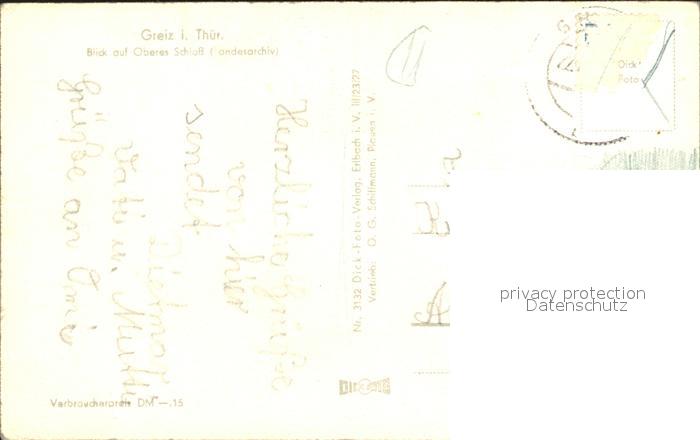 Greiz i. Thür.
Blick auf Oberes Schloß (Landesarchiv)
Herzliche Grüße
von hier
sendet
Dietmar
Vati u. Mutti
Grüße an Omi
Nr. 3132 Dick-Foto-Verlag, Erlbach i. V. III/23/27
Vertrieb: O. G. Schiffmann, Plauen i. V.
Dick
Foto
privacy protection
Datenschutz
Verbraucherpreis DM —.15